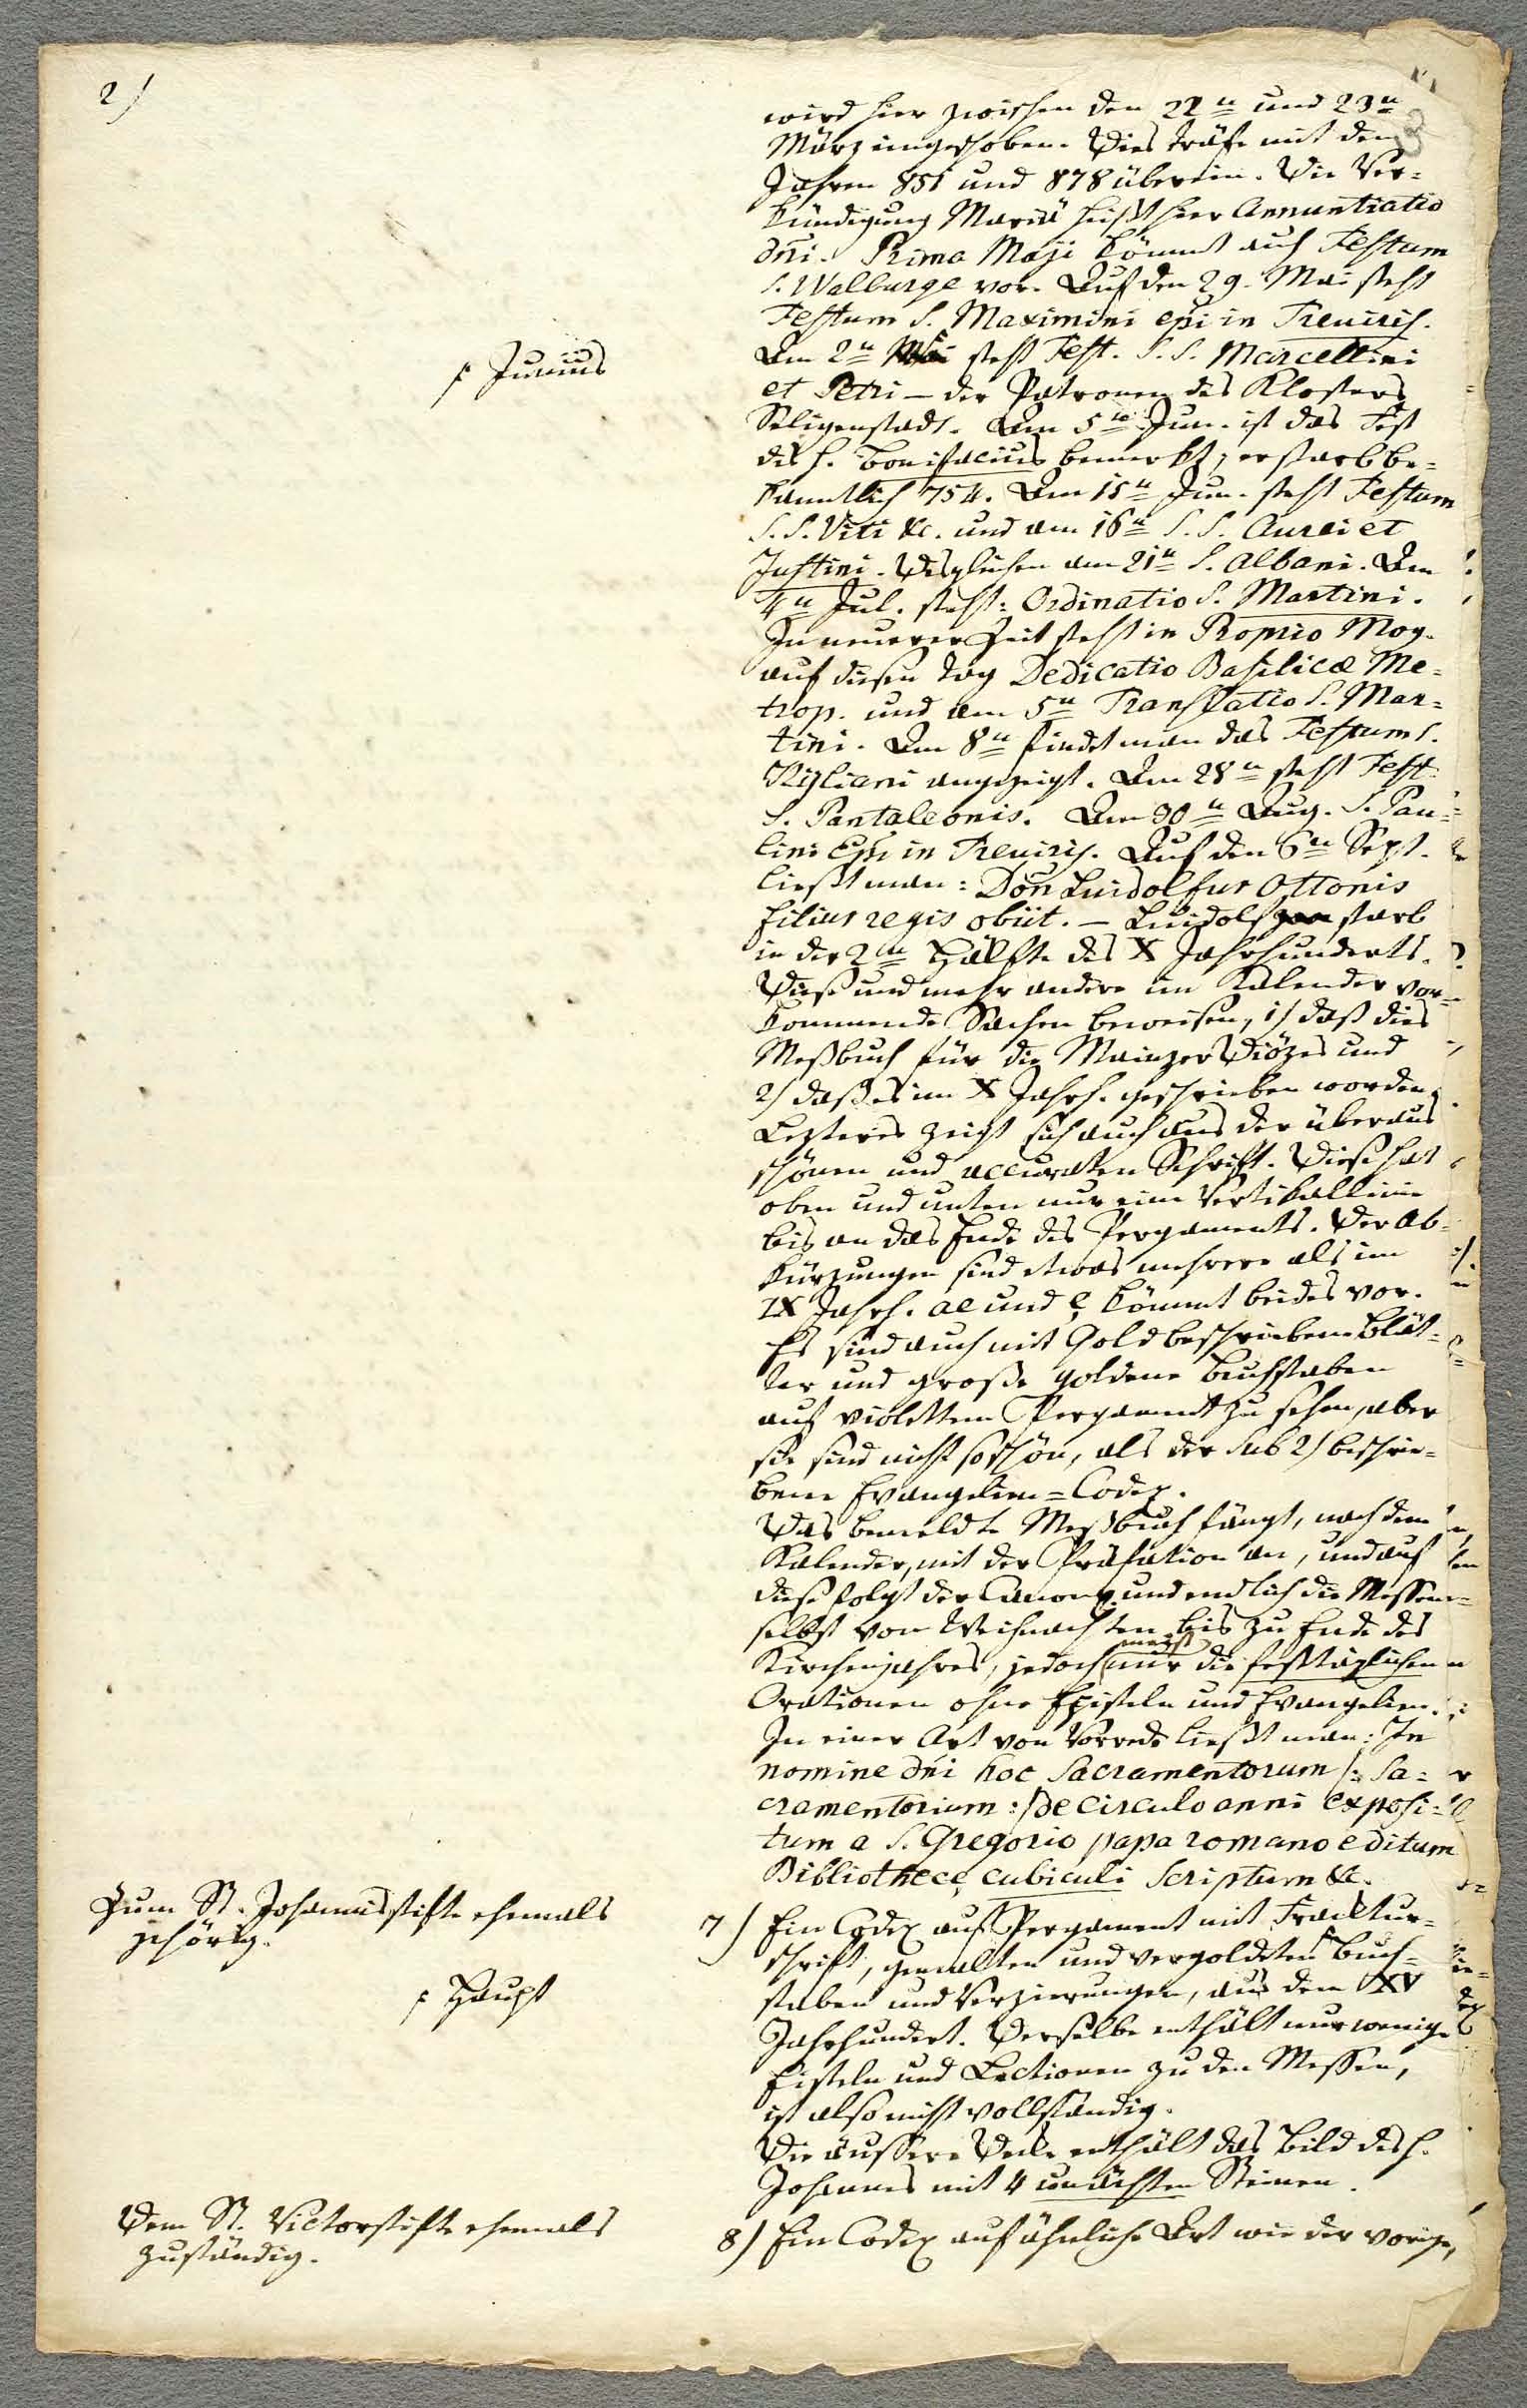 2)
wird hier zwischen den 22n und 23n
März eingeschoben. Dies träfe mit den
Jahren 851 und 878 überein. Die Ver-
kündigung Mariä heißt hier Annuntiatio
dñi. Prima Maji kömmt auch Festum
S. Walburge vor. Auf den 29. Mai steht
Festum S. Maximini epi in Treuiris.
Am 2n steht Fest. S. S. Marcellini
ſ Junius
et Petri – der Patronen des Klosters
Seligenstadt. Am 5ten Jun. ist das Fest
des h. Bonifacius bemerkt, er starb be-
kanntlich 754. Am 15n Jun. steht Festum
S. S. Viti &c. und am 16n S. S. Aurei et
Justini. Desgleichen am 21n S. Albani. Am
4n Jul. steht: Ordinatio S. Martini.
In neuerer Zeit steht in Proprio Mog.
auf diesen Tag Dedicatio Basilicæ Me-
trop. und am 5n Translatio S. Mar-
tini. Am 8n findet man das Festum S.
Kyliani angezeigt. Am 28n steht Fest.
S. Pantaleonis. Am 30n Aug. S. Pau-
lini Epi in Treuiris. Auf den 6n Sept.
ließt man: Don̄ Luidolfus Ottonis
filius regis obiit. – Luidolf starb
in der 2n Hälfte des X Jahrhunderts.
Diese und mehr andere im Kalender vor-
kommende Sachen beweisen, 1) daß dies
Meßbuch für die Mainzer Diözes und
2) daß es im X Jahrh. geschrieben worden.
Lezteres zeigt sich auch aus der überaus
schönen und accuraten Schrift. Diese hat
oben und unten nur eine Vertikallinie
bis an das Ende des Pergaments. Der Ab-
kürzungen sind etwas mehrere als im
IX Jahrh. ae und ę kömmt beides vor.
Es sind auch mit Gold beschriebene Blät-
ter und große goldene Buchstaben
auf violettem Pergament zu sehen, aber
sie sind nicht so schön, als der sub 2) beschrie-
bene Evangelien-Codex.
Das bemeldte Meßbuch fängt, nach dem
Kalender, mit der Präfation an, und auf
diese folgt der Canon, und endlich die Messen
selbst von Weihnachten bis zu Ende des
meist
Kirchenjahres, jedoch nur die festtäglichen
Orationen ohne Episteln und Evangelien.
In einer Art von Vorrede ließt man: In
nomine dñi hoc Sacramentorum /: Sa-
cramentorium :/ de circulo anni exposi-
tum a S. Gregorio papa romano editum
Bibliothecę cubiculi scriptum &c.
Zum St. Johannisstifte ehemals
gehörig.
7) Ein Codex auf Pergament mit Fracktur-
schrift, gemalten und vergoldeten ſ Buch-
ſ Haupt
staben und Verzierungen, aus dem XV
Jahrhundert. Derselbe enthält nur wenige
Episteln und Lectionen zu den Messen,
ist also nicht vollständig.
Die äussere Decke enthält das Bild des h.
Johannes mit 4 unächten Steinen.
Dem St. Victorstifte ehemals
zuständig.
8) Ein Codex auf ähnliche Art wie der vorige,